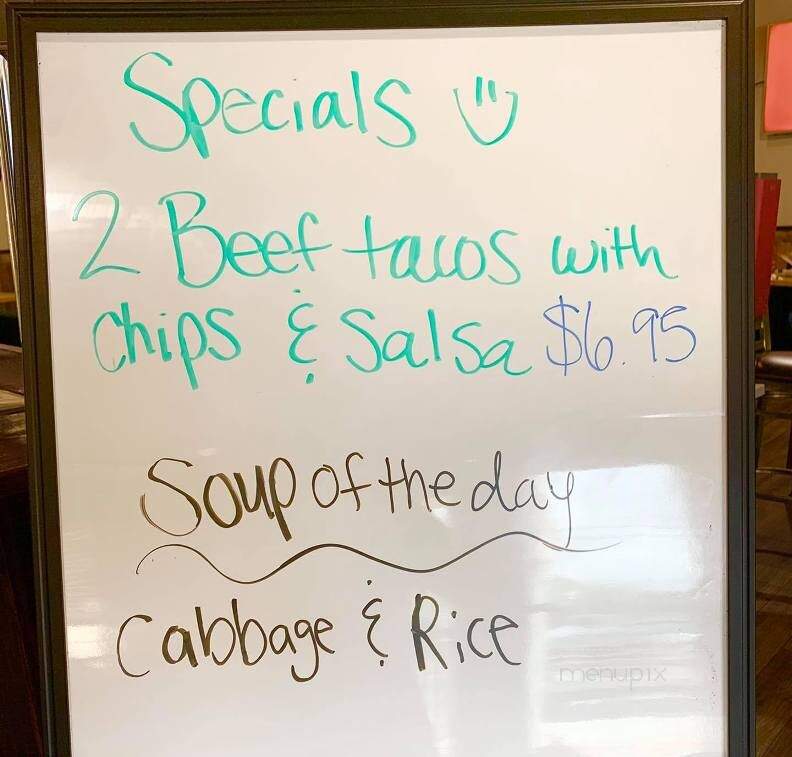 Specials
2 Beef tacos with
Chips & Salsa $6.95
Soup of the day
Cabbage & Rice
menupix